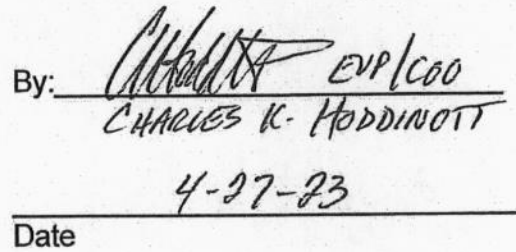 By: EVP/COO
CHARLES K. HODDINOTT
4-27-23
Date